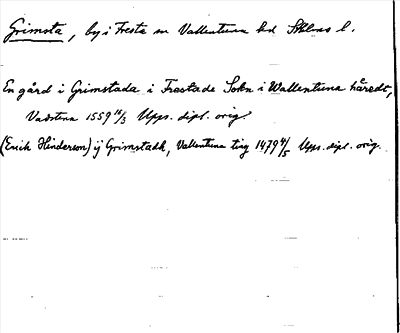 Grimsta, by i Fresta sn Vallentuna hd Sthlms l.
En gård i Grimstada i Frestade Sokn i Wallentuna häredt,
Vadstena 1559 16/3 Upps. dipl. orig.
(Erich Hinderson) ij Grimstadh, Vallentuna ting 1479 4/5 Upps. dipl. orig.